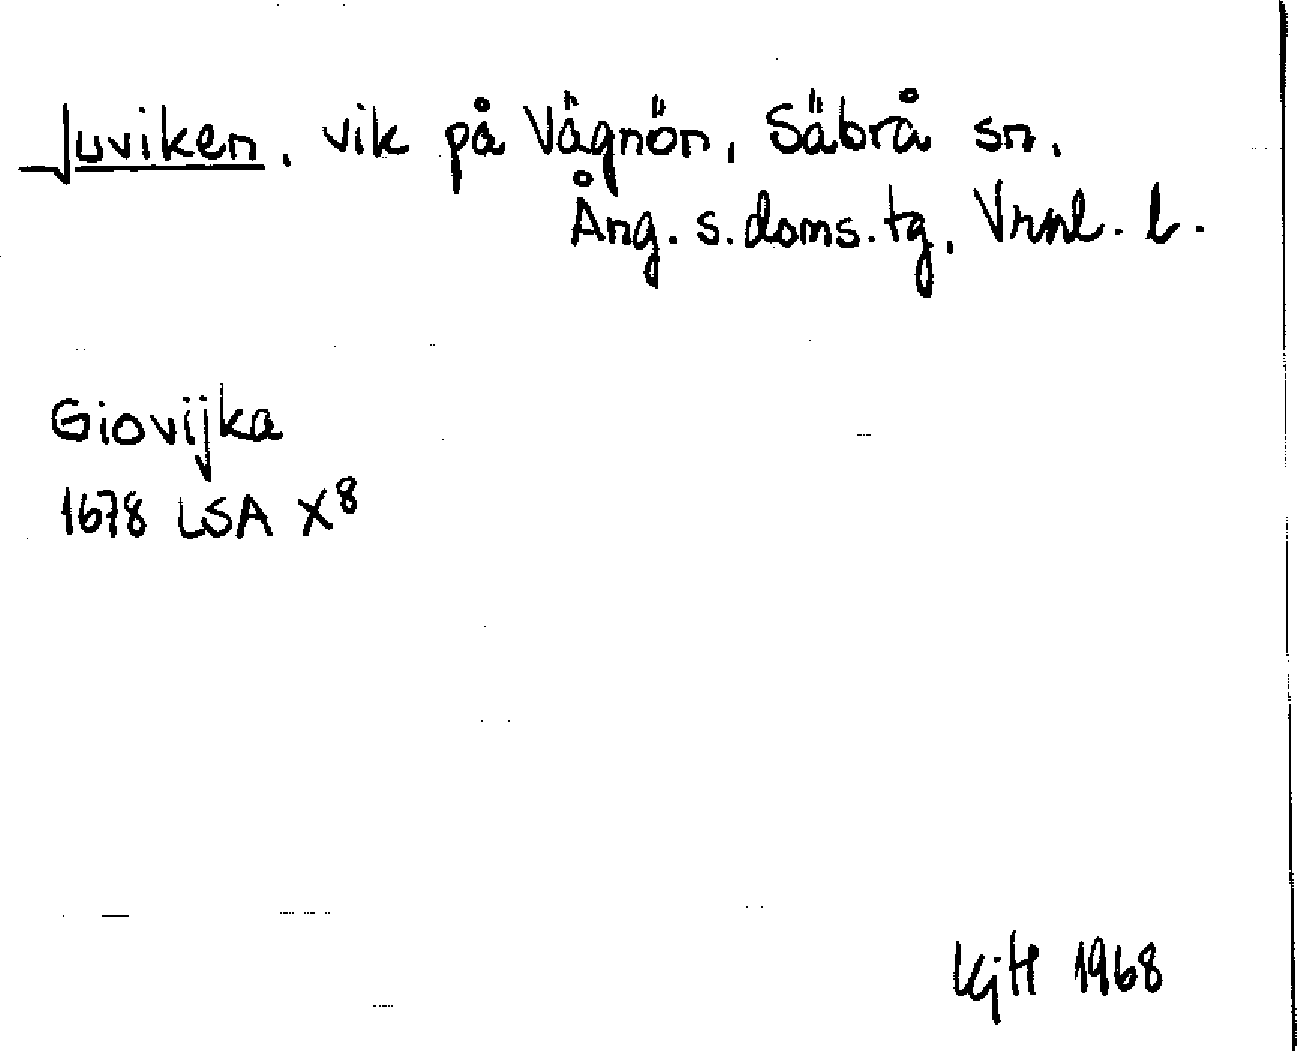 Juviken, vik på Vägnön, Säbrå sn.
Ång. s. doms. tg, Vrnl. l.
Giovijka
1678 LSA X8
KjH 1968